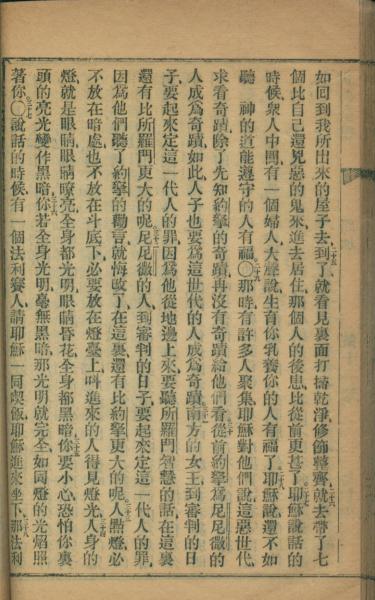 如回到我所出來的屋子去到了就看見裏面打掃乾淨修飾整齊二十六就去帶了七
個比自己還兇惡的鬼來進去居住那個人的後患比從前更甚了二十七耶穌說話的
時候衆人中間有一個婦人大聲說生育你乳養你的人有福了二十八耶穌說還不如
聽 神的道能遵守的人有福〇二十九那時有許多人聚集耶穌對他們說這惡世代
求看奇蹟除了先知約拏的奇蹟再沒有奇蹟給他們看三十從前約拏爲尼尼微的
人成爲奇蹟如此人子也要爲這世代的人成爲奇蹟三十一南方的女王到審判的日
子要起來定這一代人的罪因爲他從地邊上來要聽所羅門智慧的話在這裏
還有比所羅門更大的呢三十二尼尼微的人到審判的日子要起來定這一代人的罪
因爲他們聽了約拏的勸言就悔改了在這裏還有比約拏更大的呢三十三人點燈必
不放在暗處也不放在斗底下必要放在燈臺上叫進來的人得見燈光三十四人身的
燈就是眼睛眼睛瞭亮全身都光明眼睛昏花全身都黑暗三十五你要小心恐怕你裏
頭的亮光變作黑暗三十六你若全身光明毫無黑暗那光明就完全如同燈的光焰照
著你〇三十七說話的時候有一個法利賽人請耶穌一同喫飯耶穌進來坐下三十八那法利